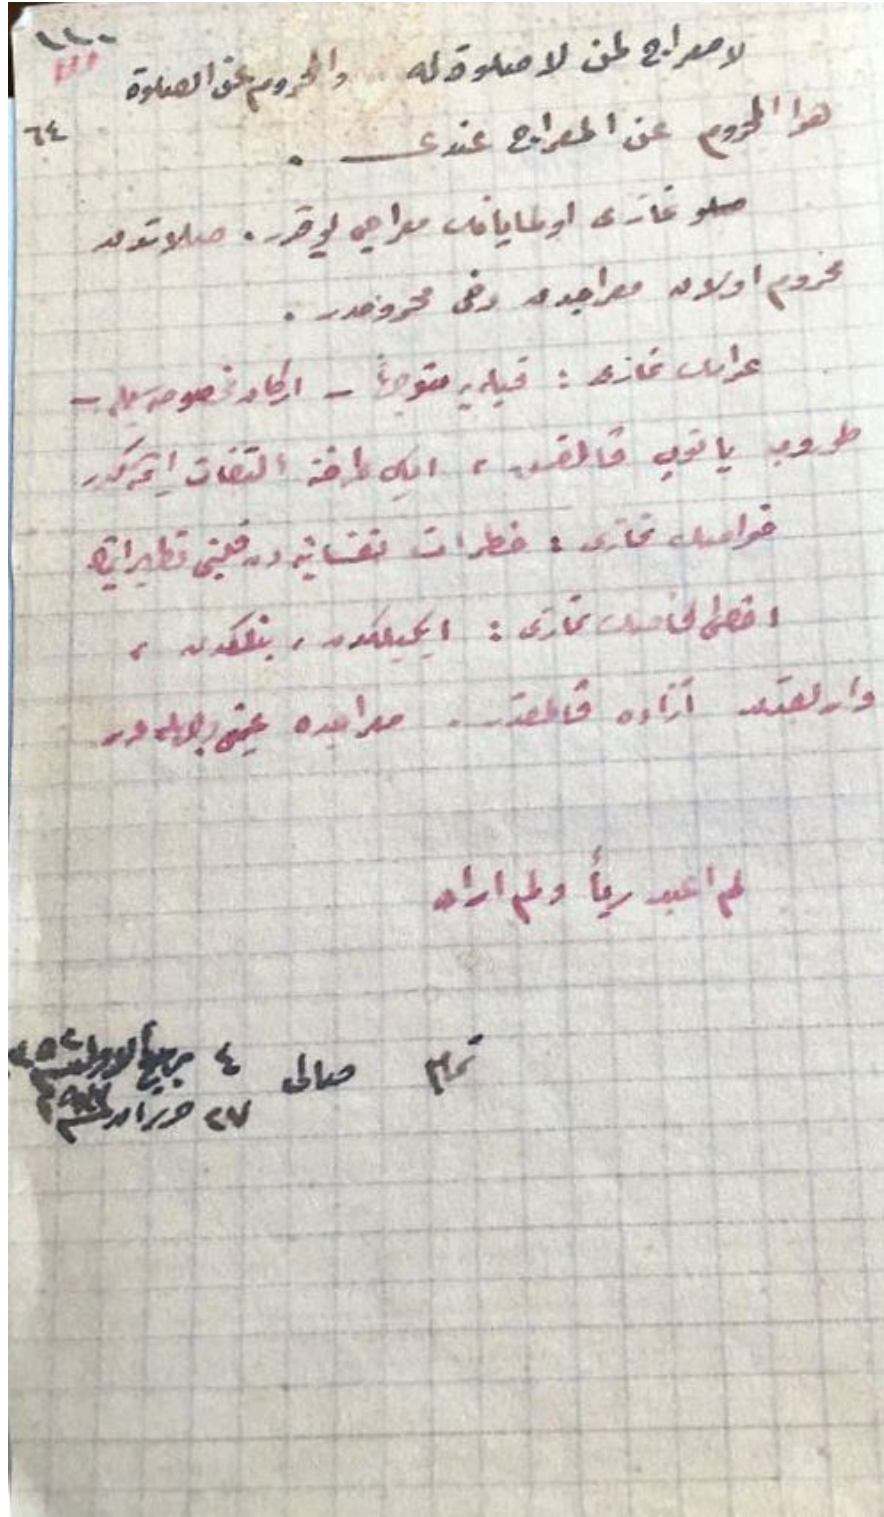 ١١٠
١١١
٦٤
لا معراج لمن لا صلوة له والمحروم عن الصلوة
هو المحروم عن المعراج عندى .
نمازى اولمايانك معراجى يوقدر . صلاتدن
محروم اولان معراجدن دخى محرومدر .
عوامك نمازى : قبله يه متوجهاً – اركان مخصوصه سيله –
طوروب ياتوب قالقمق ، ايكى طرفه التفات ايتمكدر
خواصك نمازى : خطرات نفسانيه دن قلبنى تطهير
اخص الخاصك نمازى : ايكيلكدن ، بنلكدن ،
وارلقدن آزاده قالمقدر . معراجده عينى
لم اعبد رباً ولم اراه
تمام صالى ٤ ربيع الاول
٢٧ حزيران